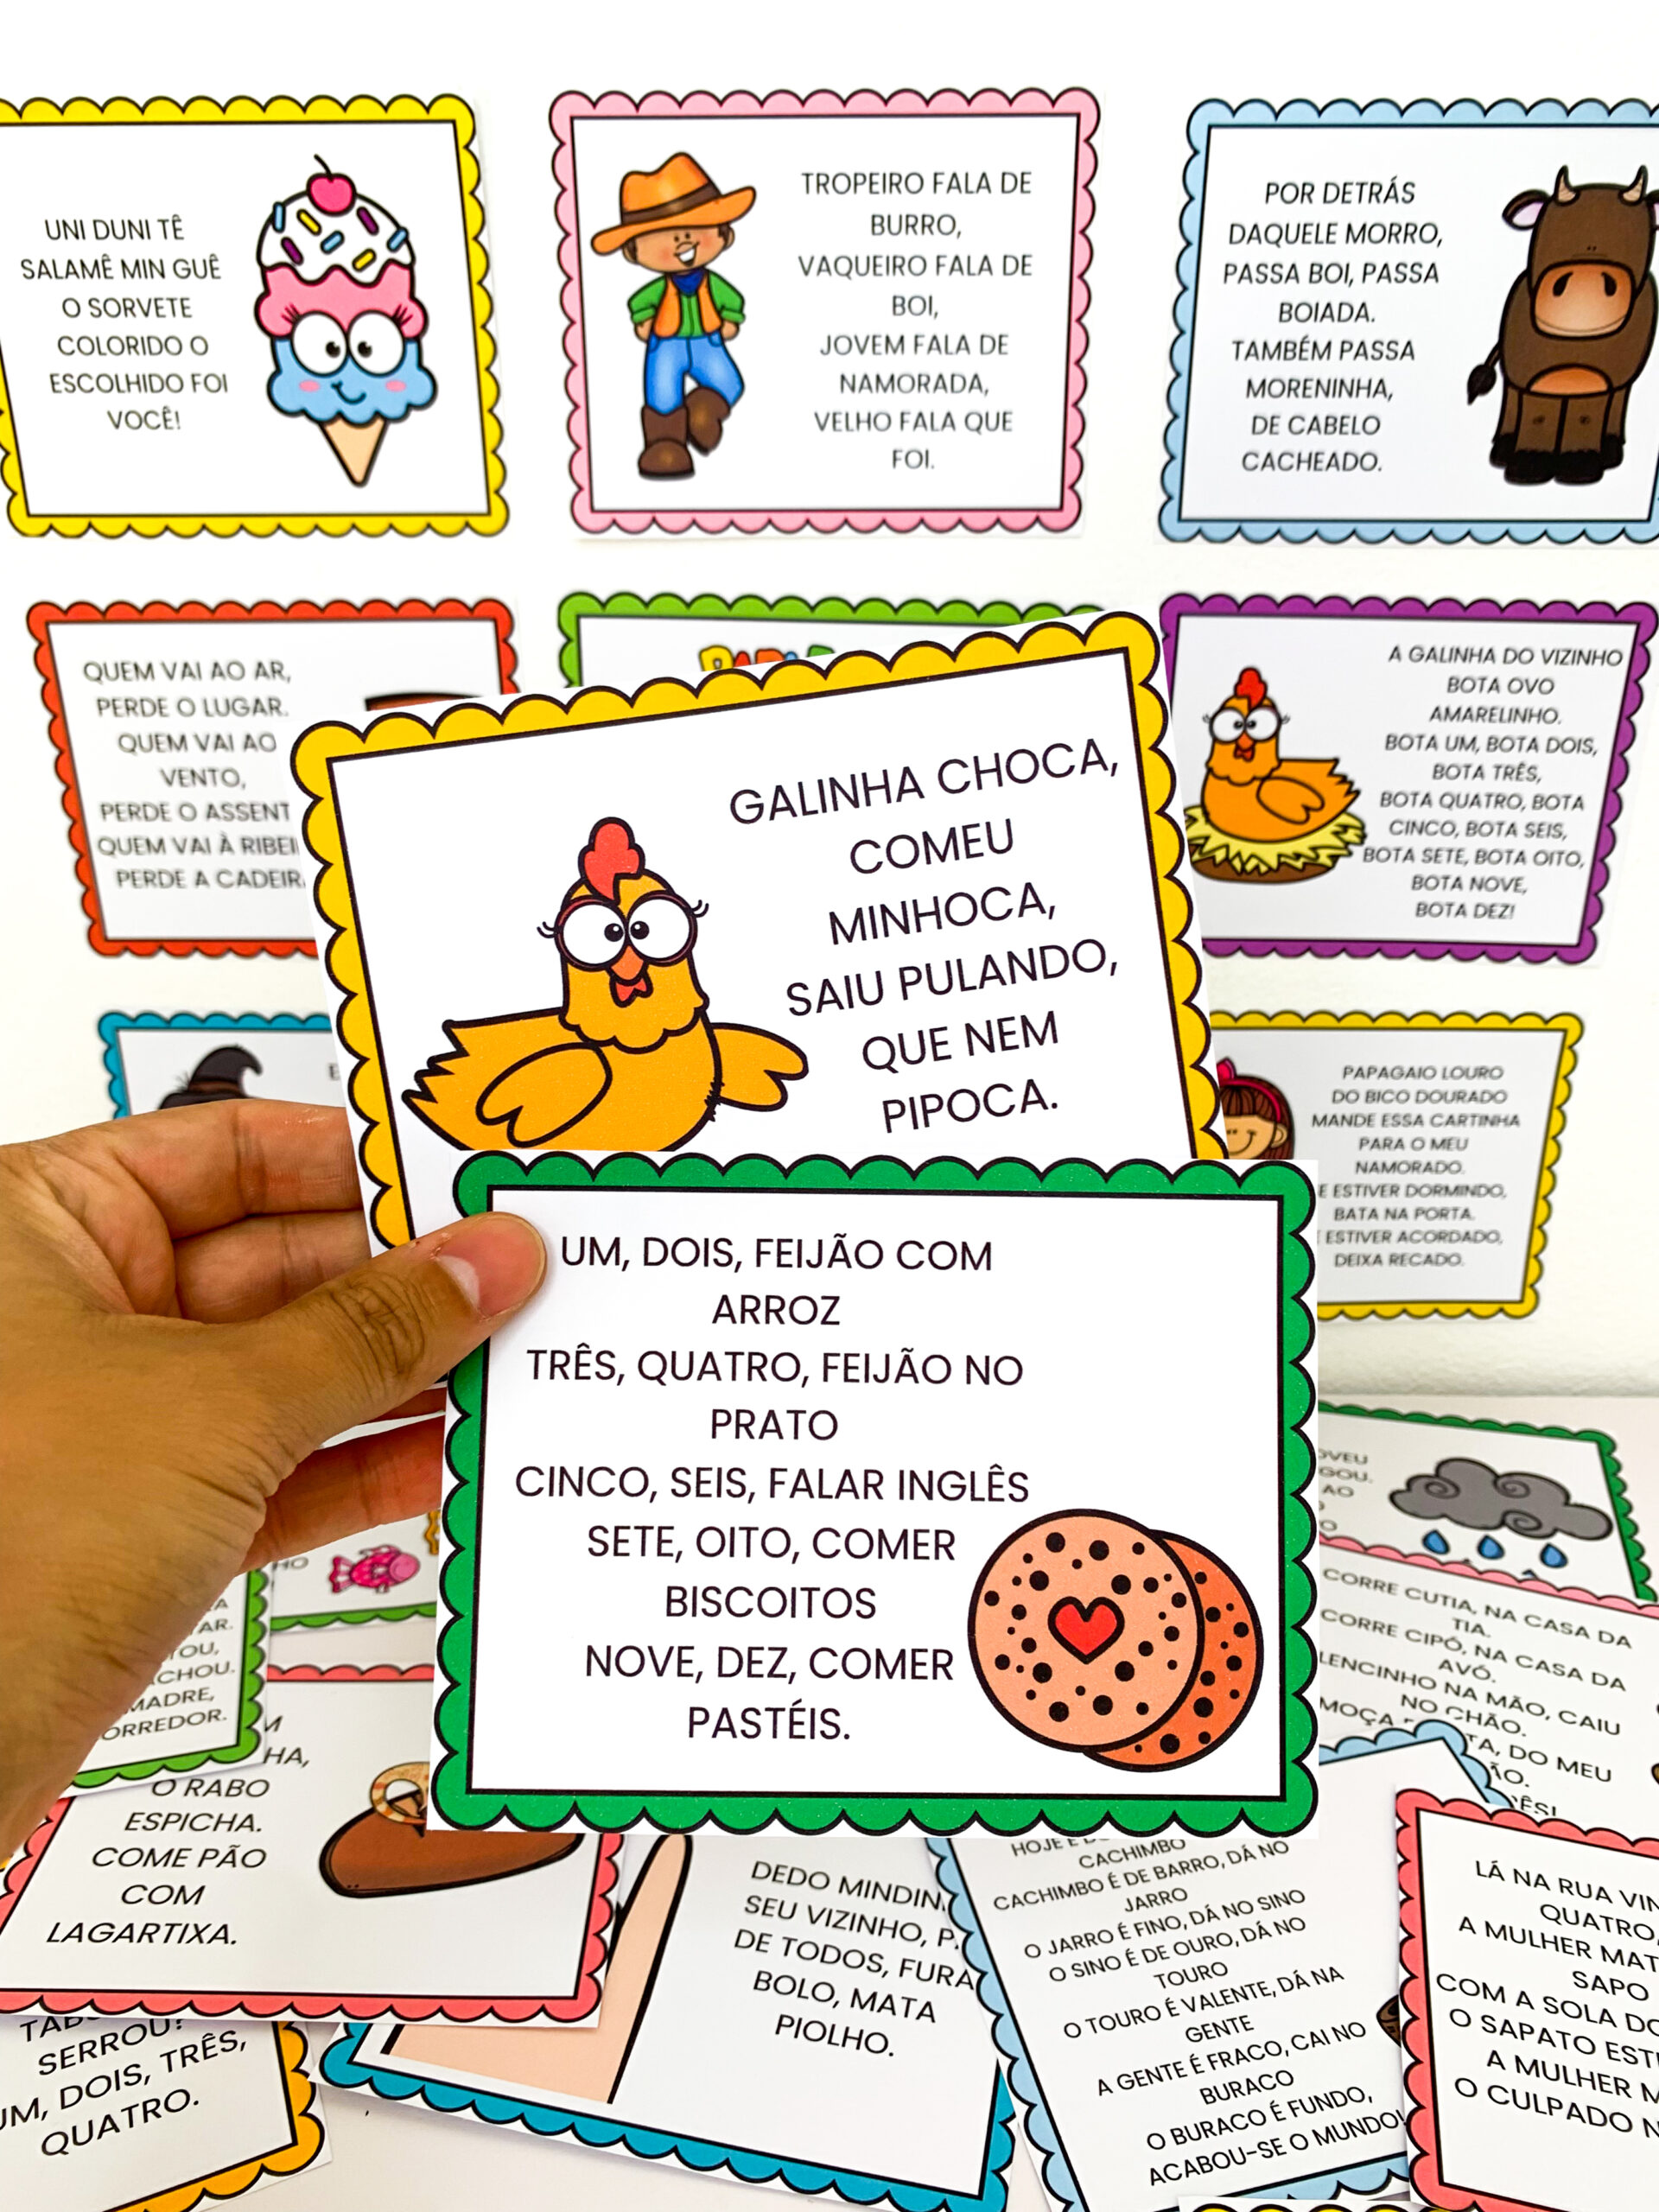 UNI DUNI TÊ
SALAMÊ MIN GUÊ
O SORVETE
COLORIDO O
ESCOLHIDO FOI
VOCÊ!
TROPEIRO FALA DE
BURRO,
VAQUEIRO FALA DE
BOI,
JOVEM FALA DE
NAMORADA,
VELHO FALA QUE
FOI.
POR DETRÁS
DAQUELE MORRO,
PASSA BOI, PASSA
BOIADA.
TAMBÉM PASSA
MORENINHA,
DE CABELO
CACHEADO.
QUEM VAI AO AR,
PERDE O LUGAR.
QUEM VAI AO
VENTO,
PERDE O
QUEM VAI À
PERDE A
A GALINHA DO VIZINHO
BOTA OVO
AMARELINHO.
BOTA UM, BOTA DOIS,
BOTA TRÊS,
BOTA QUATRO, BOTA
CINCO, BOTA SEIS,
BOTA SETE, BOTA OITO,
BOTA NOVE,
BOTA DEZ!
GALINHA CHOCA,
COMEU
MINHOCA,
SAIU PULANDO,
QUE NEM
PIPOCA.
PAPAGAIO LOURO
DO BICO DOURADO
MANDE ESSA CARTINHA
PARA O MEU
NAMORADO.
E ESTIVER DORMINDO,
BATA NA PORTA.
ESTIVER ACORDADO,
DEIXA RECADO.
UM, DOIS, FEIJÃO COM
ARROZ
TRÊS, QUATRO, FEIJÃO NO
PRATO
CINCO, SEIS, FALAR INGLÊS
SETE, OITO, COMER
BISCOITOS
NOVE, DEZ, COMER
PASTÉIS.
AO
CORRE CUTIA, NA CASA DA
TIA.
CORRE CIPÓ, NA CASA DA
AVÓ.
LENCINHO NA MÃO, CAIU
NO CHÃO.
MOÇA
DO MEU
O RABO
ESPICHA.
COME PÃO
COM
LAGARTIXA.
SERROU?
UM, DOIS, TRÊS,
QUATRO.
DEDO
SEU VIZINHO,
DE TODOS, FURA
BOLO, MATA
PIOLHO.
HOJE É
CACHIMBO
CACHIMBO É DE BARRO, DÁ NO
JARRO
O JARRO É FINO, DÁ NO SINO
O SINO É DE OURO, DÁ NO
TOURO
O TOURO É VALENTE, DÁ NA
GENTE
A GENTE É FRACO, CAI NO
BURACO
O BURACO É FUNDO,
ACABOU-SE O MUNDO!
LÁ NA RUA
QUATRO,
A MULHER
SAPO
COM A SOLA
O SAPATO
A MULHER
O CULPADO